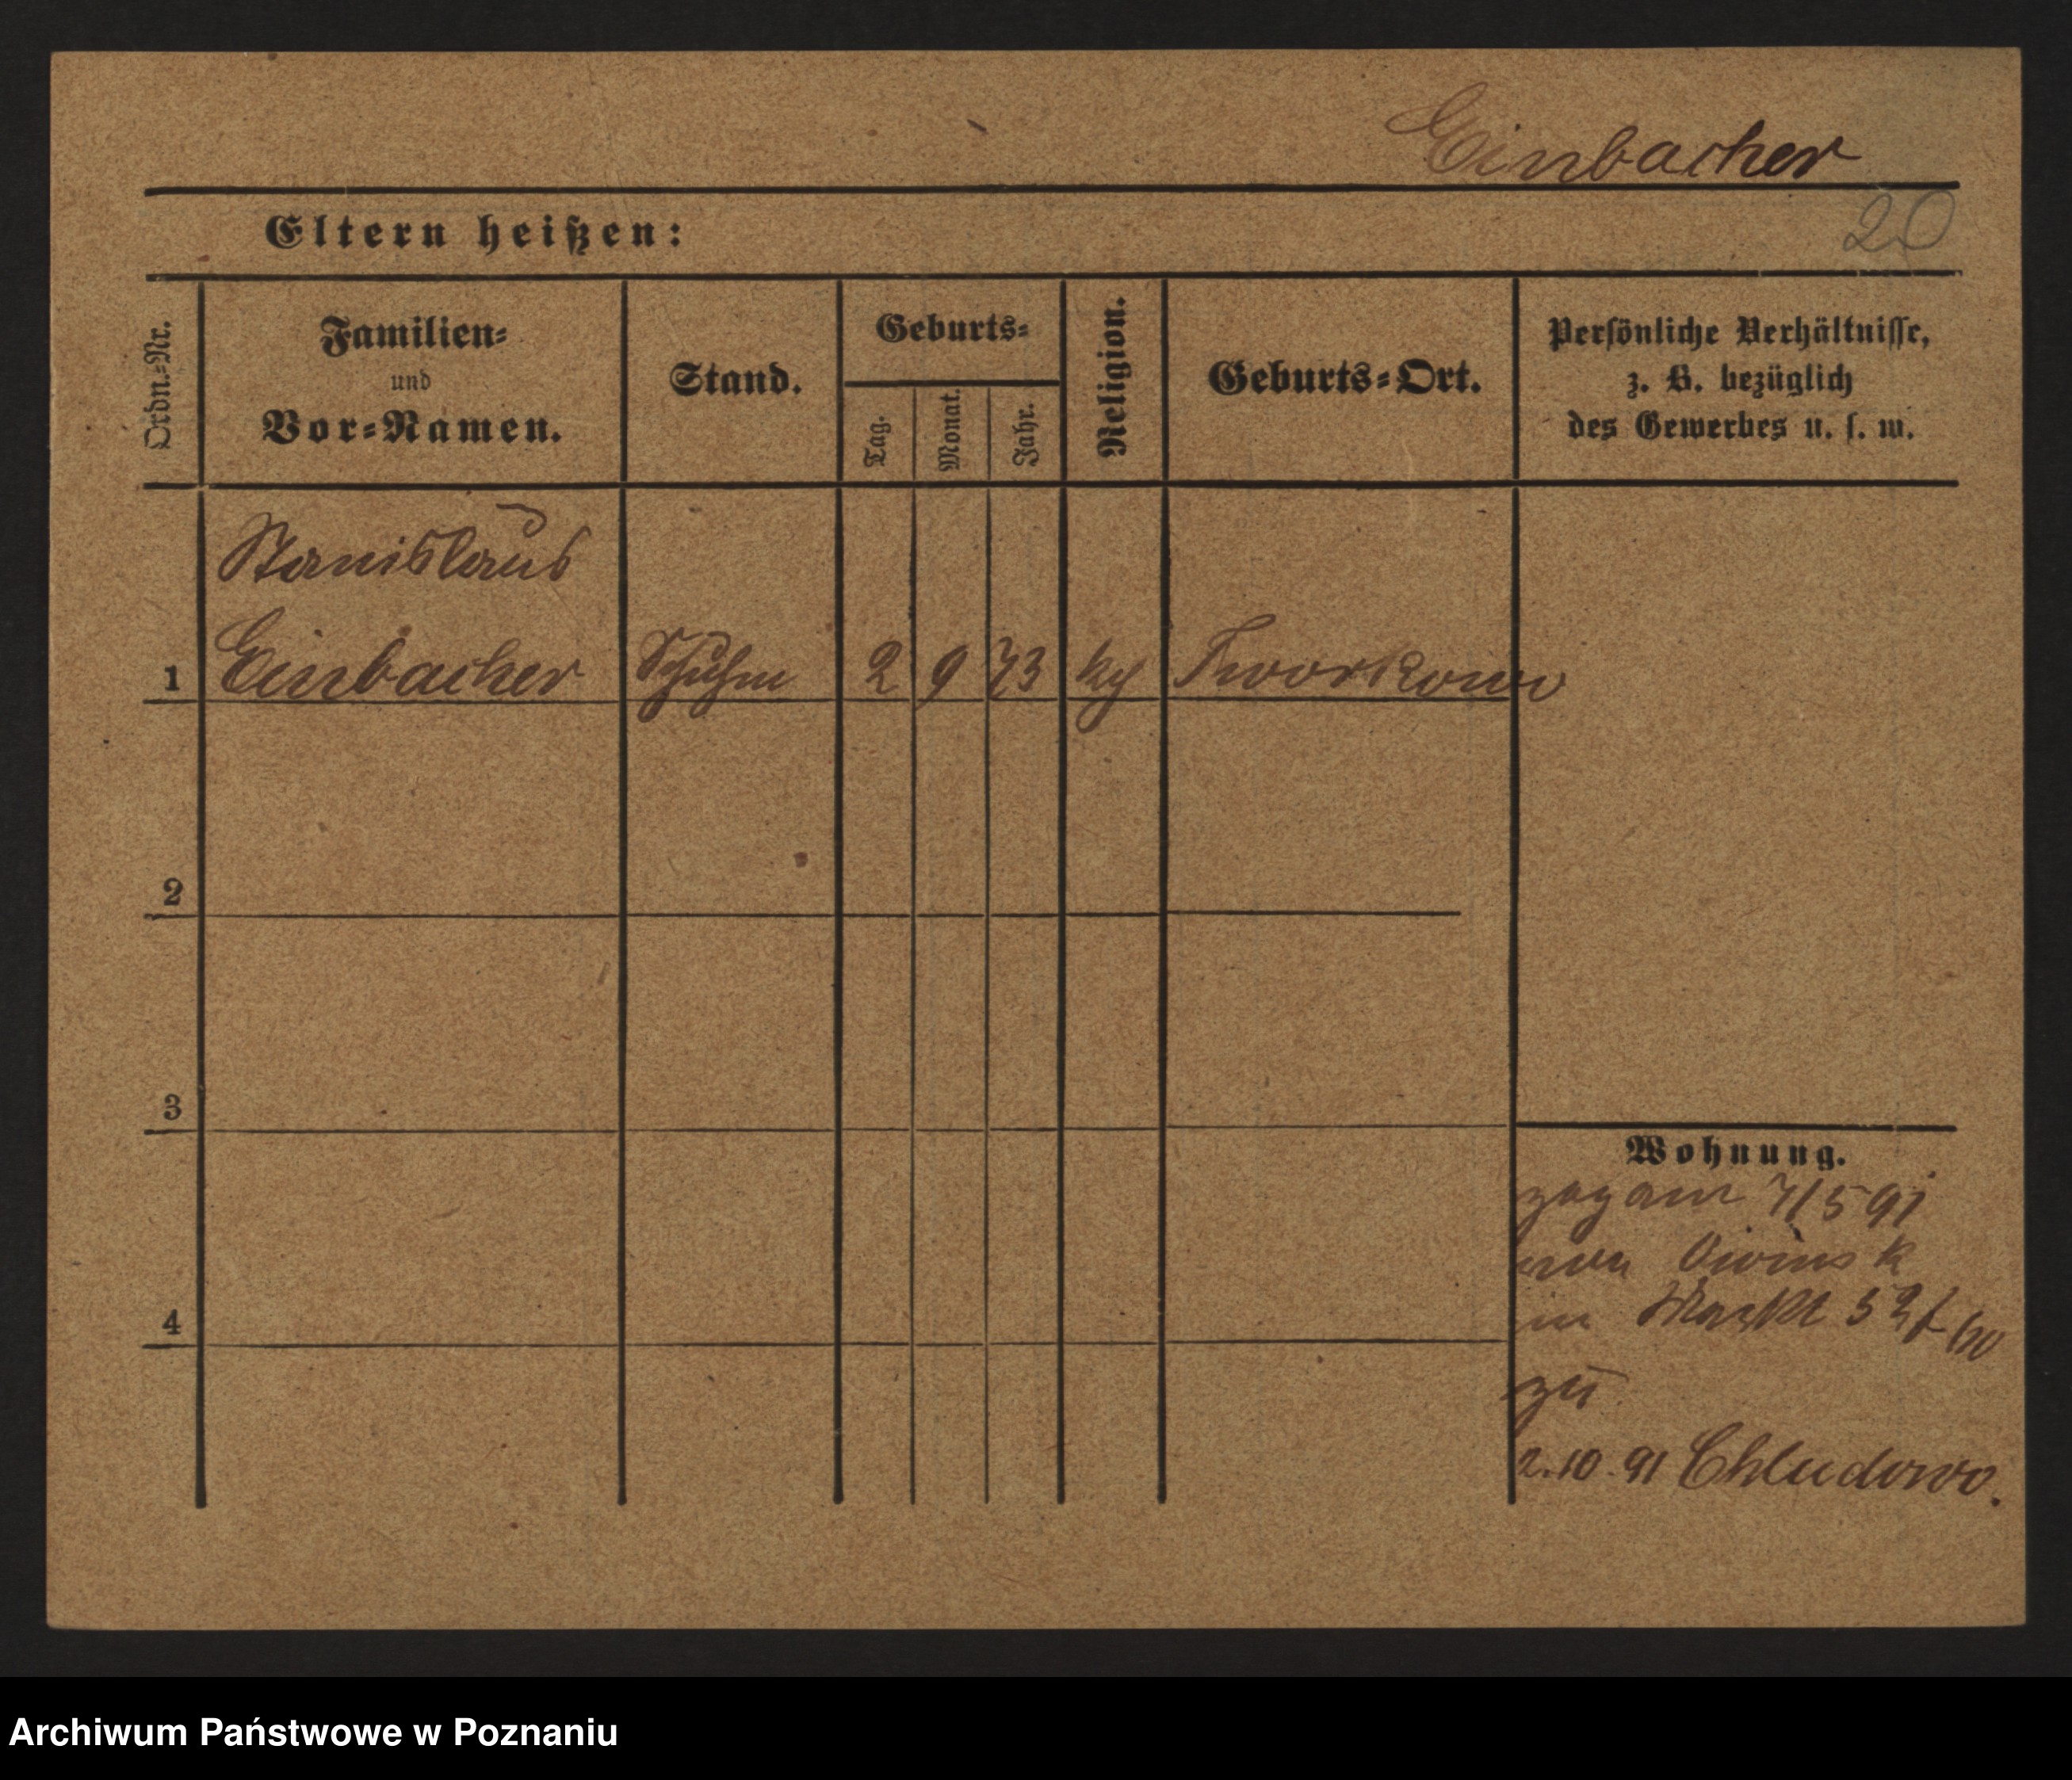 Einbacher
20
Eltern heißen:
Ordn.-Nr.
Familien-
und
Vor-Namen.
Stand.
Geburts-
Tag.
Monat.
Jahr.
Religion.
Geburts-Ort.
Persönliche Verhältnisse,
z. B. bezüglich
des Gewerbes u. s. w.
Stanislaus
1 Einbacher Schuhm 2 9 73 Tworkowo
2
3
4
Wohnung.
zog am 7/5 91
von Owinsk
in Markt 52
zu
2.10.91 Chludowo.
Archiwum Państwowe w Poznaniu